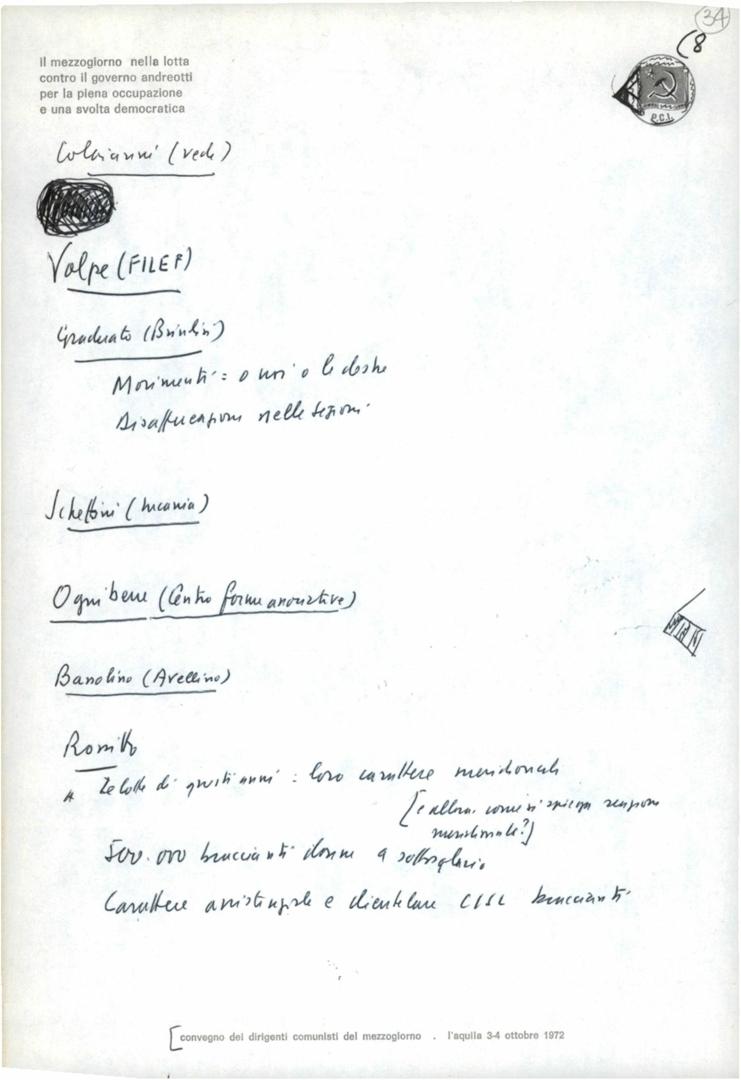 34
(8
il mezzogiorno nella lotta
contro il governo andreotti
per la piena occupazione
e una svolta democratica
P.C.I.
Colaianni (vedi)
Volpe (FILEF)
Graduato (Brindisi)
Movimenti: o noi o le destre
Disaffezione nelle sezioni
Schettini (Lucania)
Ognibene (Centro forme associative)
Bassolino (Avellino)
Rossitto
Le lotte di questi anni: loro carattere meridionale
[e allora come si spiega reazione
meridionale?]
500.000 braccianti donne a sottosalario
Carattere assistenziale e clientelare CISL braccianti
[convegno dei dirigenti comunisti del mezzogiorno . l'aquila 3-4 ottobre 1972